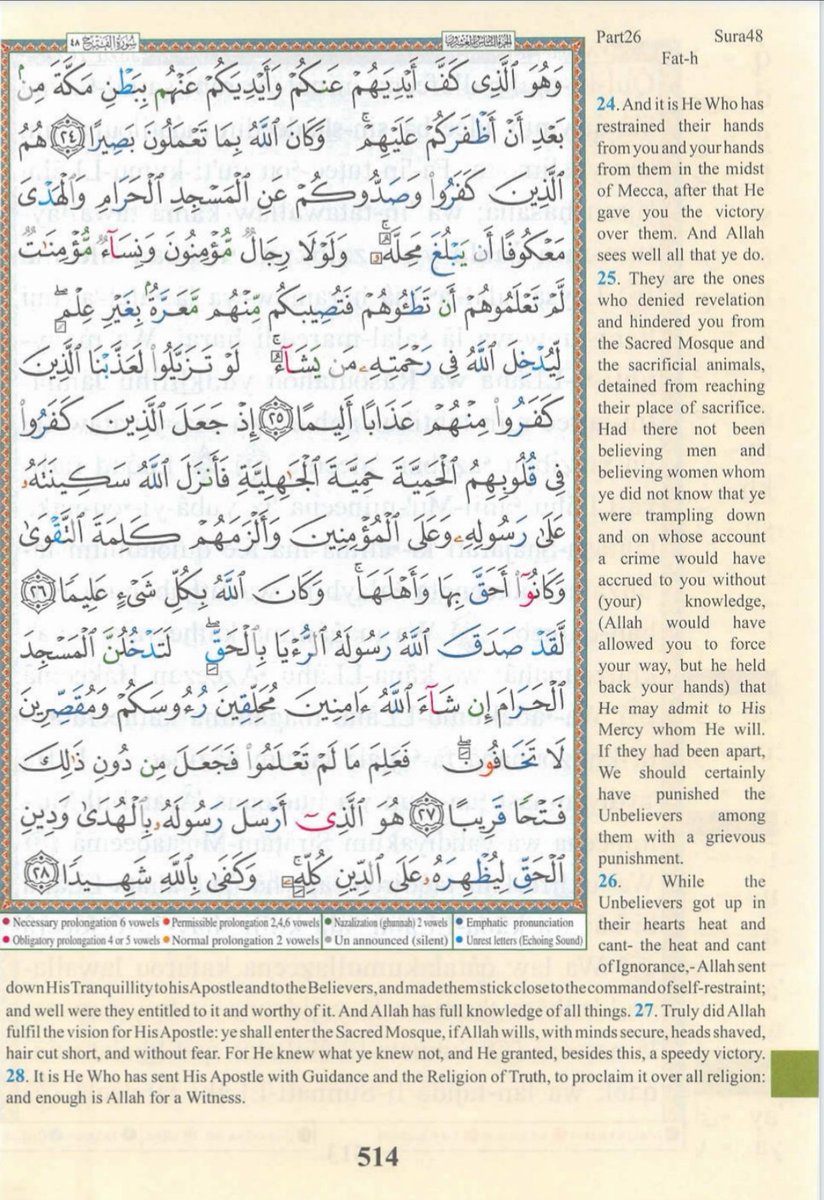 سُورَةُ الفَتْحِ ٤٨
الجزء السادس والعشرون
وَهُوَ ٱلَّذِى كَفَّ أَيْدِيَهُمْ عَنكُمْ وَأَيْدِيَكُمْ عَنْهُم بِبَطْنِ مَكَّةَ مِنۢ
بَعْدِ أَنْ أَظْفَرَكُمْ عَلَيْهِمْ ۚ وَكَانَ ٱللَّهُ بِمَا تَعْمَلُونَ بَصِيرًا ﴿٢٤﴾ هُمُ
ٱلَّذِينَ كَفَرُوا۟ وَصَدُّوكُمْ عَنِ ٱلْمَسْجِدِ ٱلْحَرَامِ وَٱلْهَدْىَ
مَعْكُوفًا أَن يَبْلُغَ مَحِلَّهُۥ ۚ وَلَوْلَا رِجَالٌ مُّؤْمِنُونَ وَنِسَآءٌ مُّؤْمِنَٰتٌ
لَّمْ تَعْلَمُوهُمْ أَن تَطَـُٔوهُمْ فَتُصِيبَكُم مِّنْهُم مَّعَرَّةٌۢ بِغَيْرِ عِلْمٍ ۖ
لِّيُدْخِلَ ٱللَّهُ فِى رَحْمَتِهِۦ مَن يَشَآءُ ۚ لَوْ تَزَيَّلُوا۟ لَعَذَّبْنَا ٱلَّذِينَ
كَفَرُوا۟ مِنْهُمْ عَذَابًا أَلِيمًا ﴿٢٥﴾ إِذْ جَعَلَ ٱلَّذِينَ كَفَرُوا۟
فِى قُلُوبِهِمُ ٱلْحَمِيَّةَ حَمِيَّةَ ٱلْجَٰهِلِيَّةِ فَأَنزَلَ ٱللَّهُ سَكِينَتَهُۥ
عَلَىٰ رَسُولِهِۦ وَعَلَى ٱلْمُؤْمِنِينَ وَأَلْزَمَهُمْ كَلِمَةَ ٱلتَّقْوَىٰ
وَكَانُوٓا۟ أَحَقَّ بِهَا وَأَهْلَهَا ۚ وَكَانَ ٱللَّهُ بِكُلِّ شَىْءٍ عَلِيمًا ﴿٢٦﴾
لَّقَدْ صَدَقَ ٱللَّهُ رَسُولَهُ ٱلرُّءْيَا بِٱلْحَقِّ ۖ لَتَدْخُلُنَّ ٱلْمَسْجِدَ
ٱلْحَرَامَ إِن شَآءَ ٱللَّهُ ءَامِنِينَ مُحَلِّقِينَ رُءُوسَكُمْ وَمُقَصِّرِينَ
لَا تَخَافُونَ ۖ فَعَلِمَ مَا لَمْ تَعْلَمُوا۟ فَجَعَلَ مِن دُونِ ذَٰلِكَ
فَتْحًا قَرِيبًا ﴿٢٧﴾ هُوَ ٱلَّذِىٓ أَرْسَلَ رَسُولَهُۥ بِٱلْهُدَىٰ وَدِينِ
ٱلْحَقِّ لِيُظْهِرَهُۥ عَلَى ٱلدِّينِ كُلِّهِۦ ۚ وَكَفَىٰ بِٱللَّهِ شَهِيدًا ﴿٢٨﴾
• Necessary prolongation 6 vowels • Permissible prolongation 2,4,6 vowels • Nazalization (ghunnah) 2 vowels • Emphatic pronunciation
• Obligatory prolongation 4 or 5 vowels • Normal prolongation 2 vowels • Un announced (silent) • Unrest letters (Echoing Sound)
Part26 Sura48
Fat-h
24. And it is He Who has
restrained their hands
from you and your hands
from them in the midst
of Mecca, after that He
gave you the victory
over them. And Allah
sees well all that ye do.
25. They are the ones
who denied revelation
and hindered you from
the Sacred Mosque and
the sacrificial animals,
detained from reaching
their place of sacrifice.
Had there not been
believing men and
believing women whom
ye did not know that ye
were trampling down
and on whose account
a crime would have
accrued to you without
(your) knowledge,
(Allah would have
allowed you to force
your way, but he held
back your hands) that
He may admit to His
Mercy whom He will.
If they had been apart,
We should certainly
have punished the
Unbelievers among
them with a grievous
punishment.
26. While the
Unbelievers got up in
their hearts heat and
cant- the heat and cant
of Ignorance,- Allah sent
down His Tranquillity to his Apostle and to the Believers, and made them stick close to the command of self-restraint;
and well were they entitled to it and worthy of it. And Allah has full knowledge of all things. 27. Truly did Allah
fulfil the vision for His Apostle: ye shall enter the Sacred Mosque, if Allah wills, with minds secure, heads shaved,
hair cut short, and without fear. For He knew what ye knew not, and He granted, besides this, a speedy victory.
28. It is He Who has sent His Apostle with Guidance and the Religion of Truth, to proclaim it over all religion:
and enough is Allah for a Witness.
514